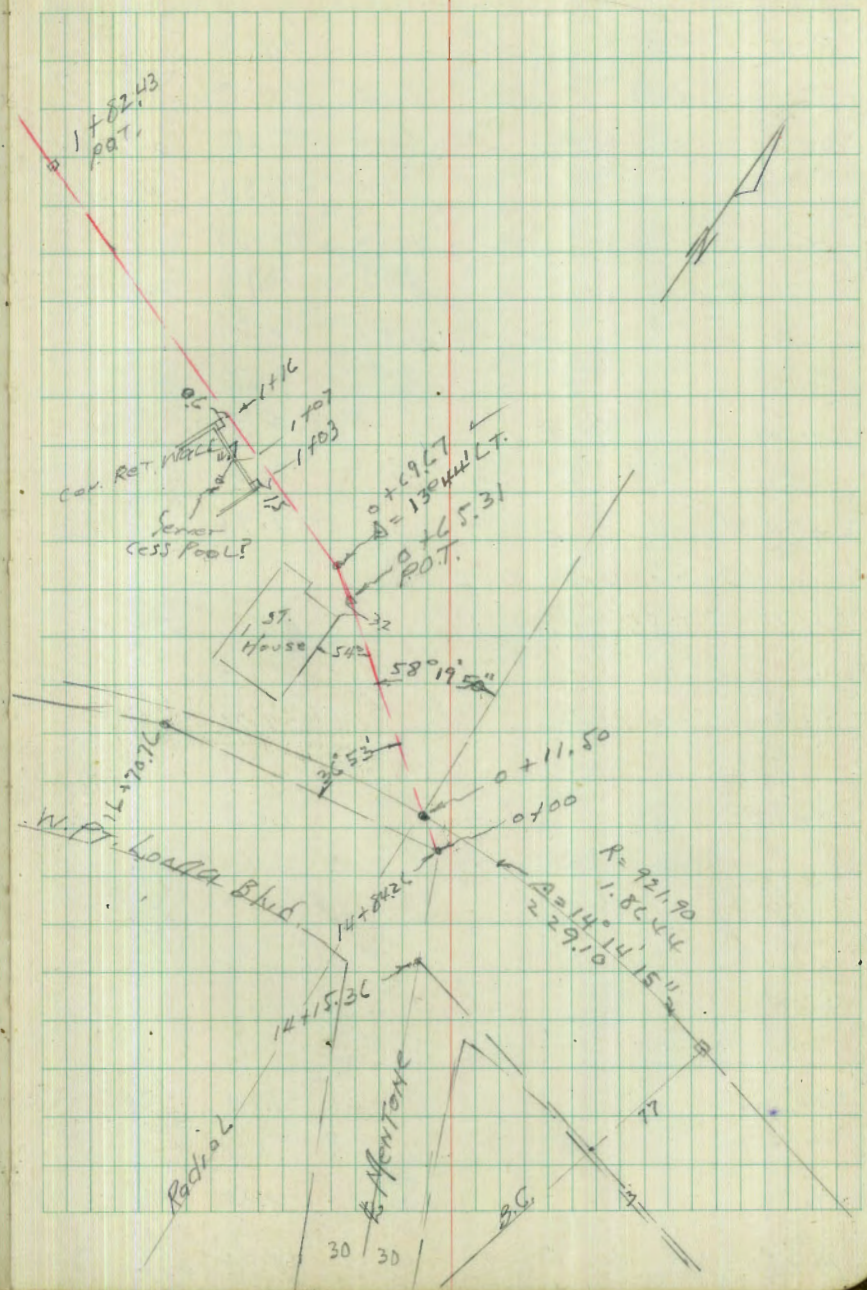 1+82.43
P.O.T.
N
0.6
1+16
1+07
1+03
Con. Ret. Wall
1.5
Sewer
Cess Pool?
0+69.67
Δ = 13°44' LT.
0+65.31
P.O.T.
1 ST.
House
32
54°
58°19'50"
36°53'
0+11.50
0+00
16+70.76
W. PT. Loma Blvd.
14+84.26
14+15.36
R= 921.90
1.8644
Δ=14°14'15"
229.10
77
B.C.
Radial
℄ Mentone
30 30